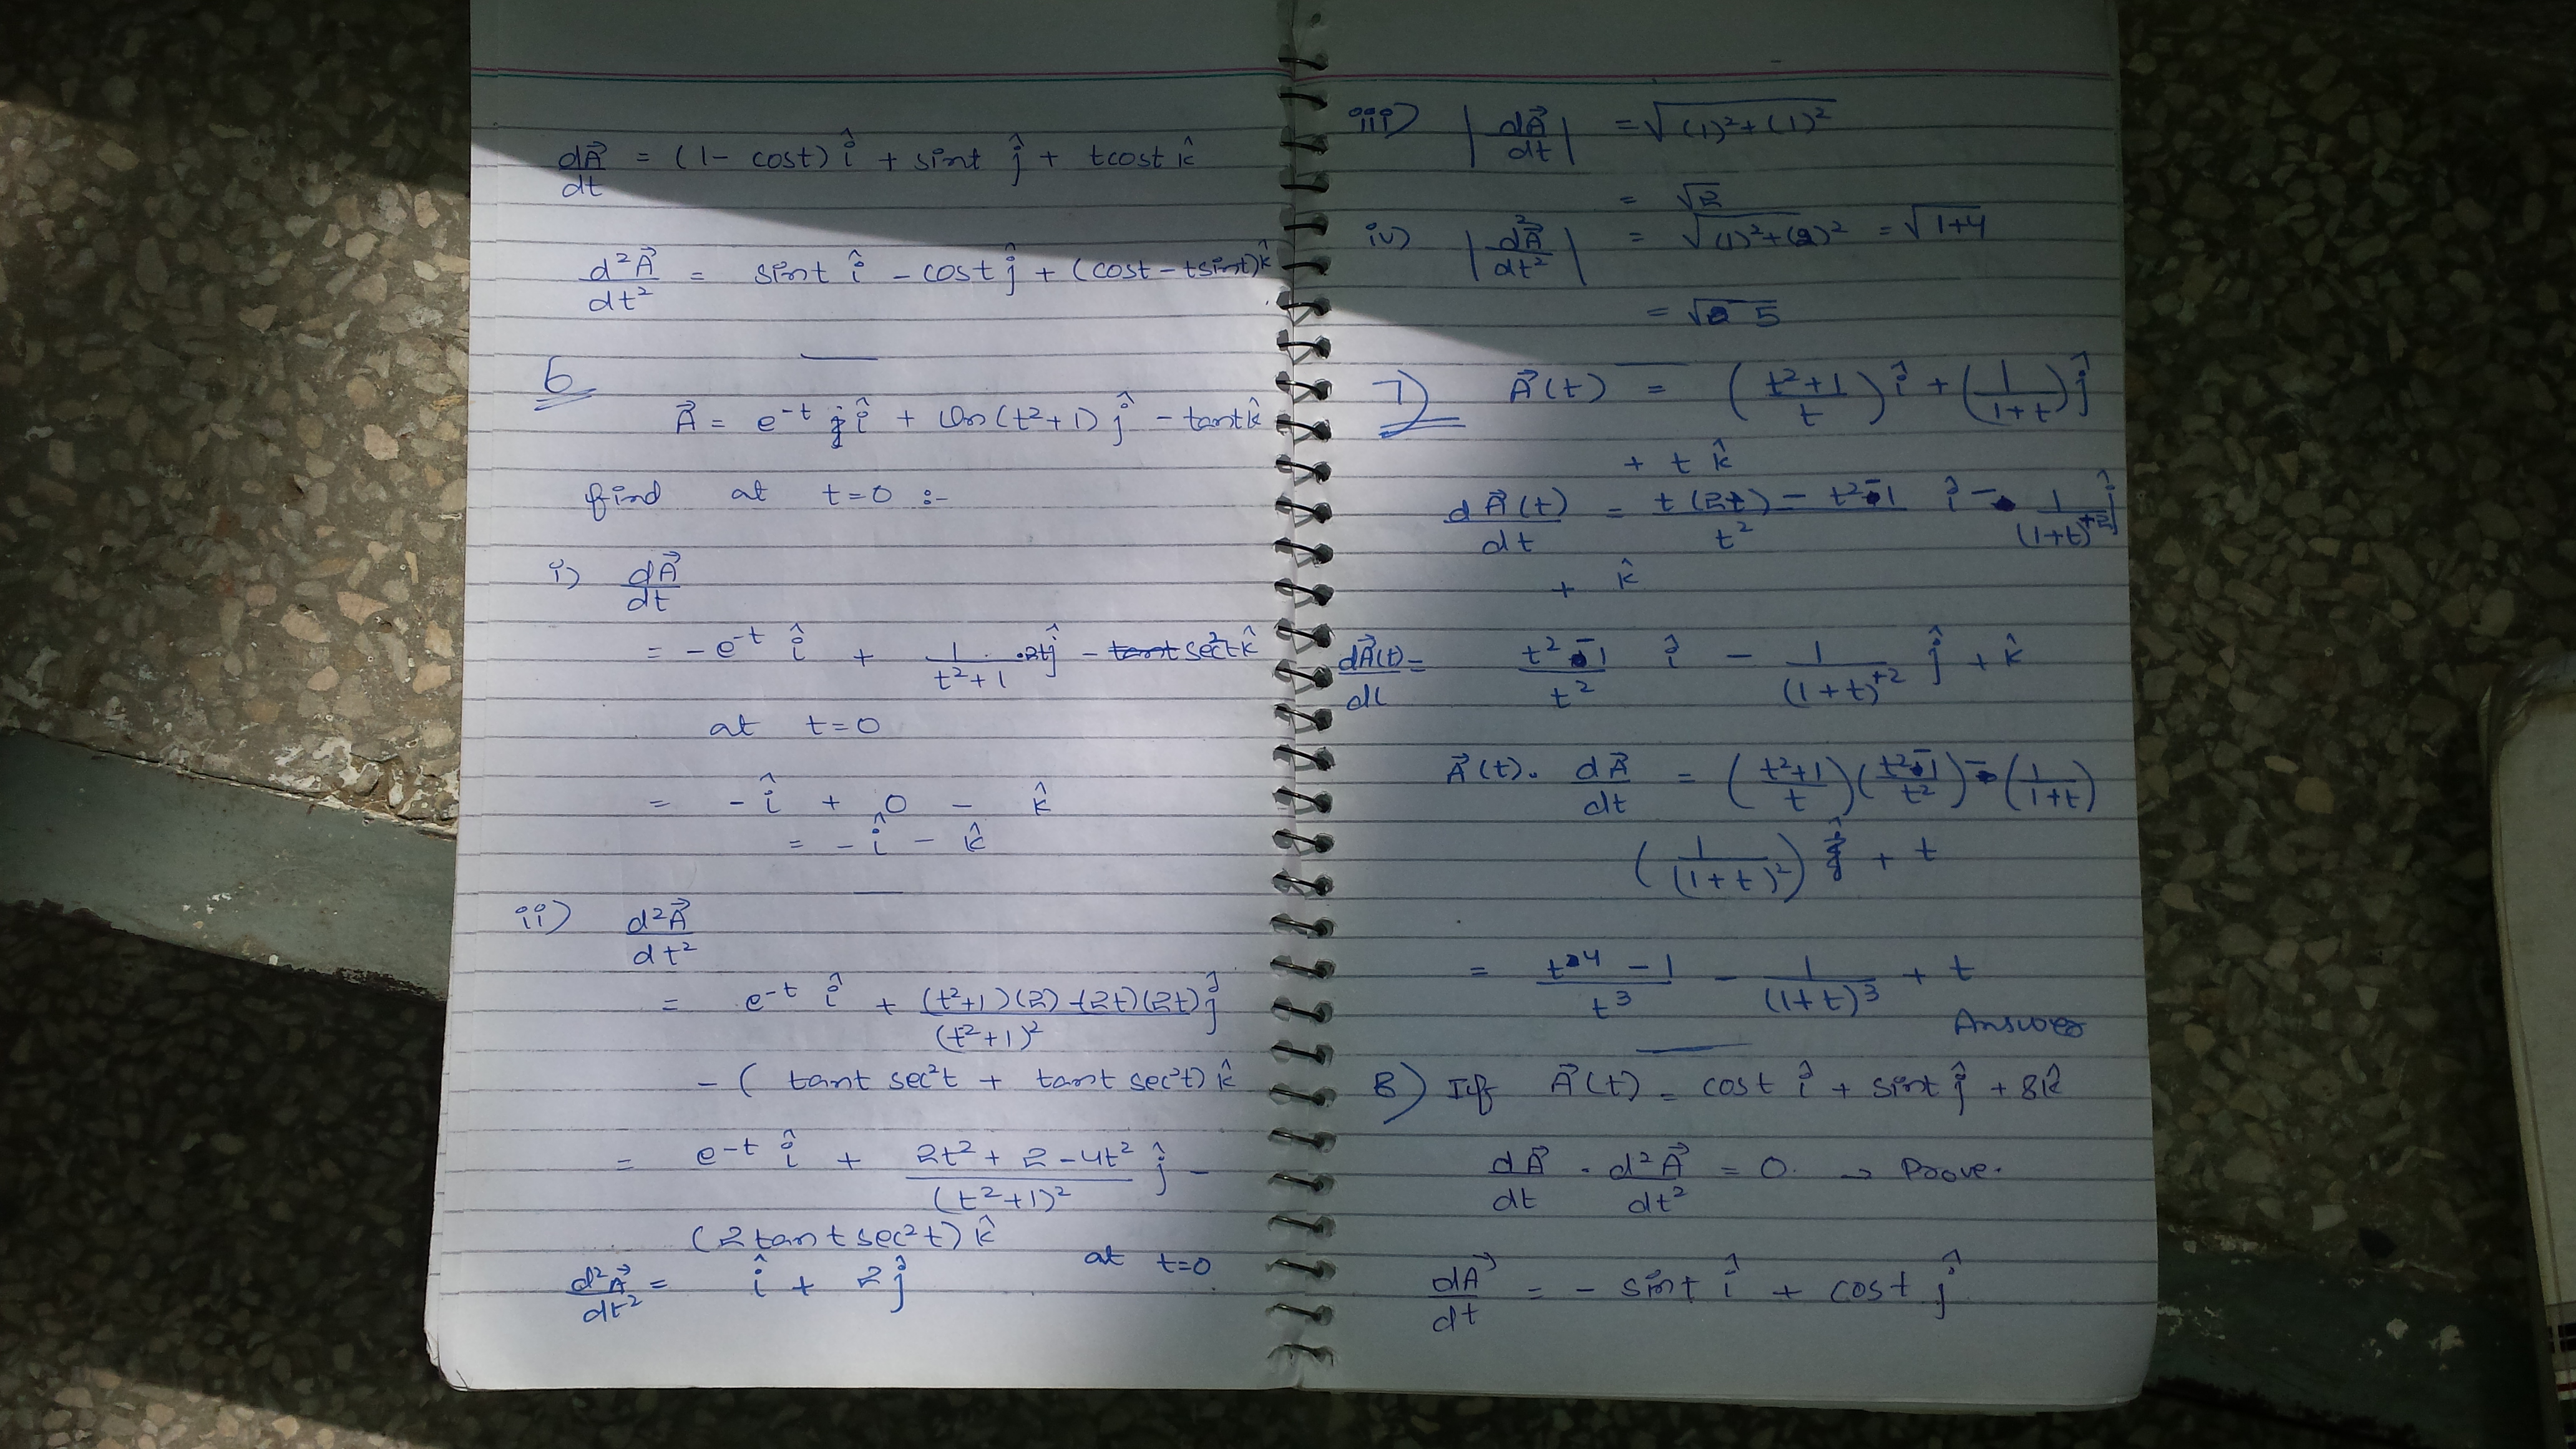 dA⃗/dt = (1 - cost) î + sint ĵ + tcost k̂
d²A⃗/dt² = sint î - cost ĵ + (cost - tsint) k̂
6
A⃗ = e^-t î + ln(t²+1) ĵ - tant k̂
find at t=0 :-
i) dA⃗/dt
= -e^-t î + 1/(t²+1) .2t ĵ - sec²t k̂
at t=0
= - î + 0 - k̂
= - î - k̂
ii) d²A⃗/dt²
= e^-t î + ((t²+1)(2) - (2t)(2t))/(t²+1)² ĵ
- ( tant sec²t + tant sec²t) k̂
= e^-t î + (2t² + 2 - 4t²)/(t²+1)² ĵ -
(2tant sec²t) k̂
at t=0
d²A⃗/dt² = î + 2 ĵ
iii) |dA⃗/dt| = √((1)²+(1)²)
= √2
iv) |d²A⃗/dt²| = √((1)²+(2)²) = √(1+4)
= √5
7) A⃗(t) = ((t²+1)/t) î + (1/(1+t)) ĵ
+ t k̂
dA⃗(t)/dt = (t(2t) - t² - 1)/t² î - 1/(1+t)^+2 ĵ
+ k̂
dA⃗(t)/dt = (t² - 1)/t² î - 1/(1+t)^+2 ĵ + k̂
A⃗(t). dA⃗/dt = ((t²+1)/t) ((t²-1)/t²) - (1/(1+t))
(1/(1+t)²) + t
= (t⁴ - 1)/t³ - 1/(1+t)³ + t
Answer
8) If A⃗(t) = cost î + sint ĵ + 8k̂
dA⃗/dt . d²A⃗/dt² = 0. → Prove.
dA⃗/dt = - sint î + cost ĵ